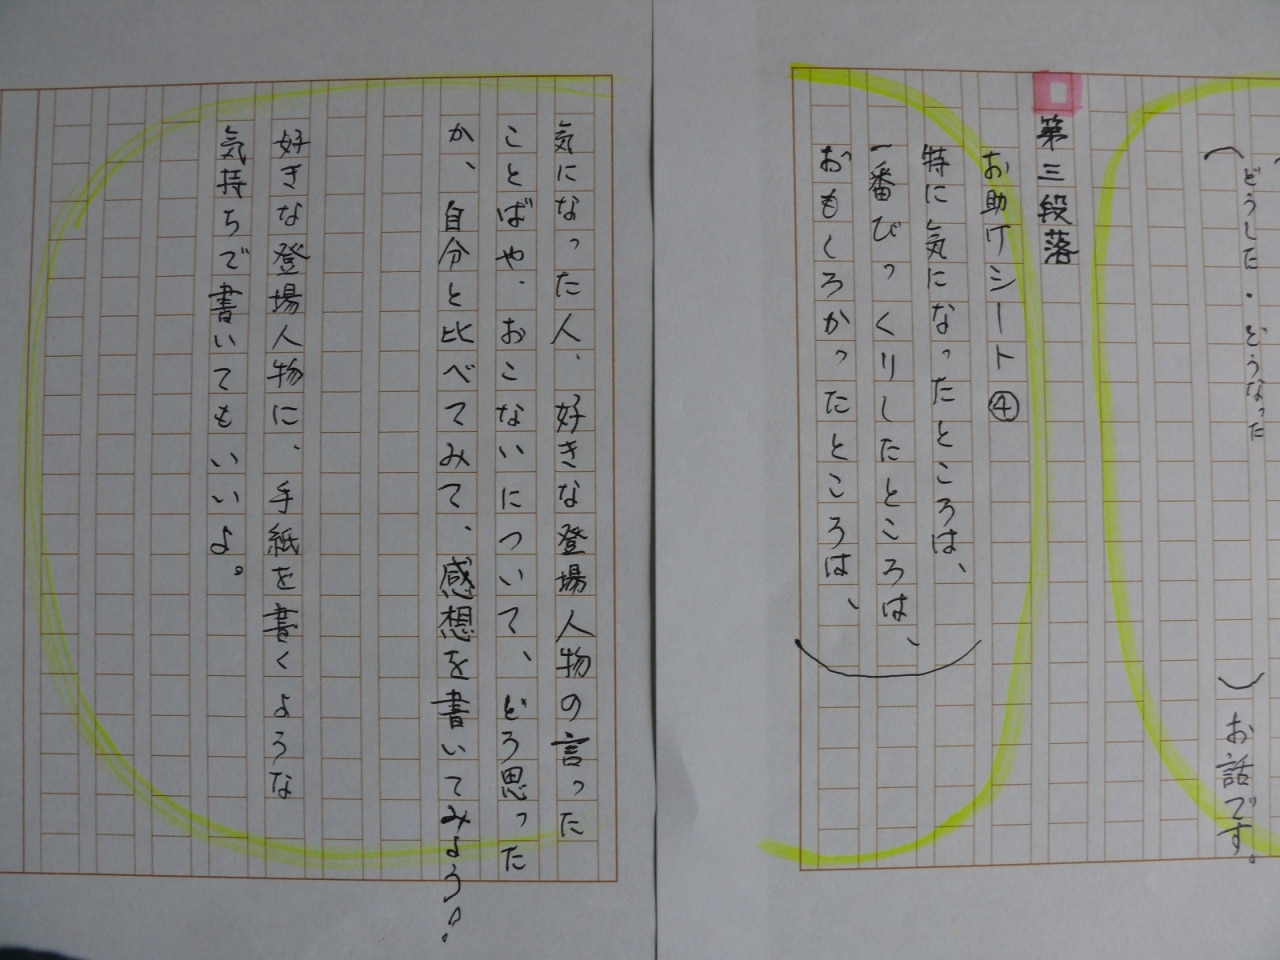 どうした・どうなった
（　　　）お話です。
第三段落
お助けシート④
特に気になったところは、
一番びっくりしたところは、
おもしろかったところは、
気になった人、好きな登場人物の言った
ことばや、おこないについて、どう思った
か、自分と比べてみて、感想を書いてみよう！
好きな登場人物に、手紙を書くような
気持ちで書いてもいいよ。